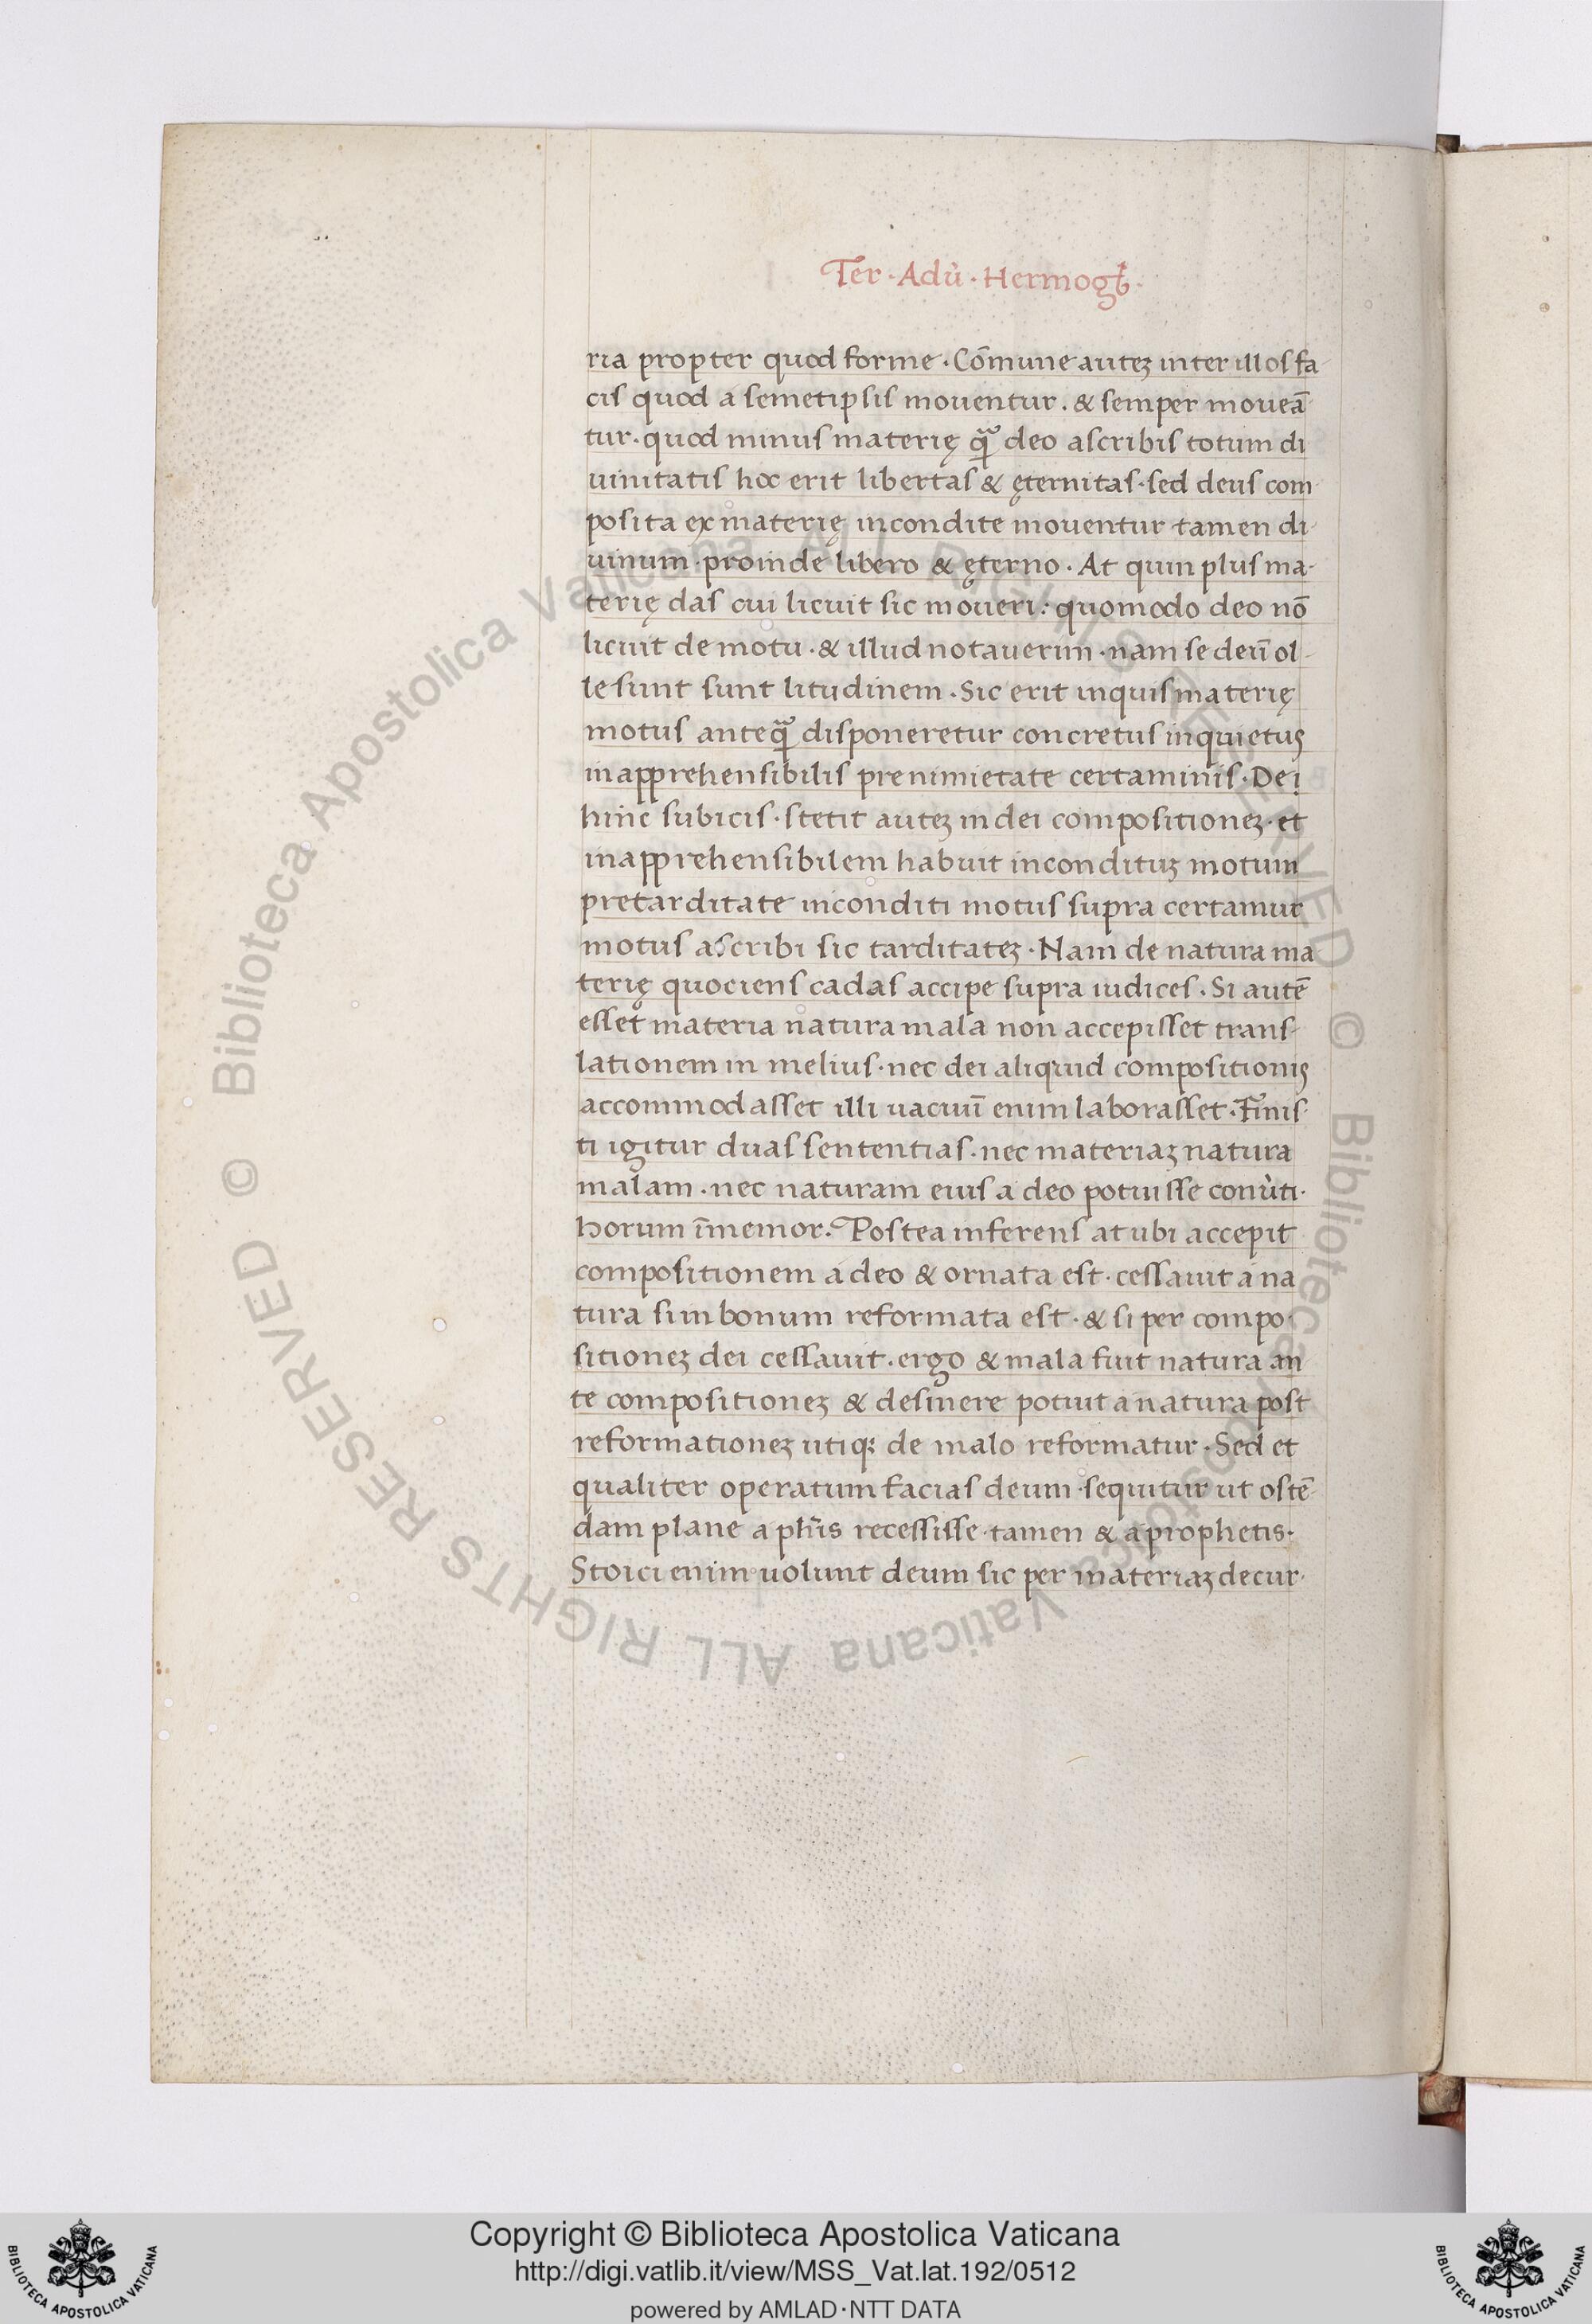 Ter · Adu̓ · Hermogē ·
ria propter quod forme · Cōmune auteꝫ inter illos fa
cis quod a semetipsis mouentur . & semper moueā
tur · quod minus materię quā deo ascribis totum di
uinitatis hoc erit libertas & ęternitas · sed deus com
posita ex materię incondite mouentur tamen di
uinum · proinde libero & ęterno · At quin plus ma-
terię das cui licuit sic moueri : quomodo deo nō
licuit de motu · & illud notauerim · nam se deū ol
le sunt sunt litudinem · Sic erit inquis materię
motus antequā disponeretur concretus inquietus
inapprehensibilis pre nimietate certaminis · Dei
hinc subicis · stetit auteꝫ in dei compositioneꝫ · et
inapprehensibilem habuit incondituꝫ motum
pre tarditate inconditi motus supra certamur
motus ascribi sic tarditateꝫ · Nam de natura ma
terię quociens cadas accipe supra iudices . Si autē
esset materia natura mala non accepisset trans-
lationem in melius · nec dei aliquid compositionis
accommodasset illi uacuū enim laborasset · Finis
ti igitur duas sententias · nec materiaꝫ natura
malam · nec naturam eius a deo potuisse conu̓ti ·
horum īmemor . Postea inferens at ubi accepit
compositionem a deo & ornata est · cessauit a na
tura si in bonum reformata est · & si per compo
sitioneꝫ dei cessauit . ergo & mala fuit natura an
te compositioneꝫ & desinere potuit a natura post
reformationeꝫ utiqꝫ de malo reformatur · Sed et
qualiter operatum facias deum · sequitur ut ostē
dam plane a ph̄is recessisse · tamen & a prophetis ·
Stoici enim uolunt deum sic per materiaꝫ decur
© Biblioteca Apostolica Vaticana ALL RIGHTS RESERVED © Biblioteca Apostolica Vaticana ALL RIGHTS RESERVED
Copyright © Biblioteca Apostolica Vaticana
http://digi.vatlib.it/view/MSS_Vat.lat.192/0512
powered by AMLAD·NTT DATA
BIBLIOTECA APOSTOLICA VATICANA
BIBLIOTECA APOSTOLICA VATICANA